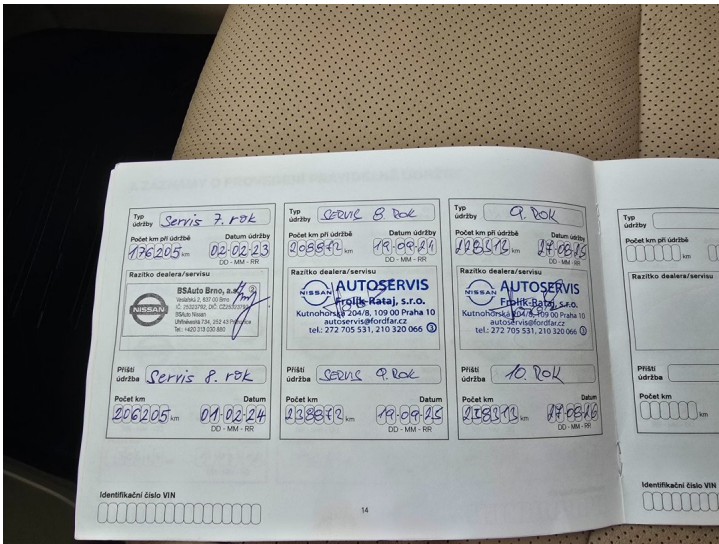 Typ údržby Servis 7. rok
Počet km při údržbě Datum údržby
176205 km 02-02-23
DD - MM - RR
Razítko dealera/servisu
NISSAN
BSAuto Brno, a.s.
Veslařská 2, 637 00 Brno
BSAuto Nissan
Tel.: +420 313 030 880
Příští údržba Servis 8. rok
Počet km Datum
206205 km 01-02-24
DD - MM - RR
Typ údržby SERVIS 8. ROK
Počet km při údržbě Datum údržby
208872 km 19-09-24
DD - MM - RR
Razítko dealera/servisu
NISSAN
AUTOSERVIS
Frolík-Rataj, s.r.o.
Kutnohorská 204/8, 109 00 Praha 10
autoservis@fordfar.cz
tel.: 272 705 531, 210 320 066 3
Příští údržba SERVIS 9. ROK
Počet km Datum
238872 km 19-09-25
DD - MM - RR
Typ údržby 9. ROK
Počet km při údržbě Datum údržby
228313 km 27-08-25
DD - MM - RR
Razítko dealera/servisu
NISSAN
AUTOSERVIS
Frolík-Rataj, s.r.o.
Kutnohorská 204/8, 109 00 Praha 10
autoservis@fordfar.cz
tel.: 272 705 531, 210 320 066 3
Příští údržba 10. ROK
Počet km Datum
238313 km 27-08-26
DD - MM - RR
Typ údržby
Počet km při údržbě
km
Razítko dealera/servisu
Příští údržba
Počet km
km
Identifikační číslo VIN
14
Identifikační číslo VIN